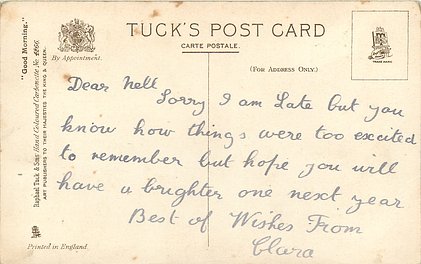 TUCK'S POST CARD
CARTE POSTALE.
By Appointment.
(FOR ADDRESS ONLY.)
TRADE MARK
"Good Morning."
Raphael Tuck & Sons' Hand Coloured Carbonette No.
ART PUBLISHERS TO THEIR MAJESTIES THE KING & QUEEN.
Dear Nell
Sorry I am Late but you
know how things were too excited
to remember but hope you will
have a brighter one next year
Best of Wishes From
Clara
Printed in England.